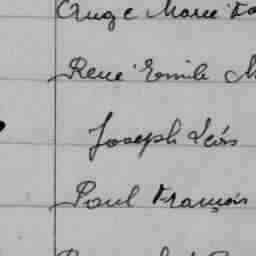 Ange Marie
René Emile
Joseph Léon
Paul François